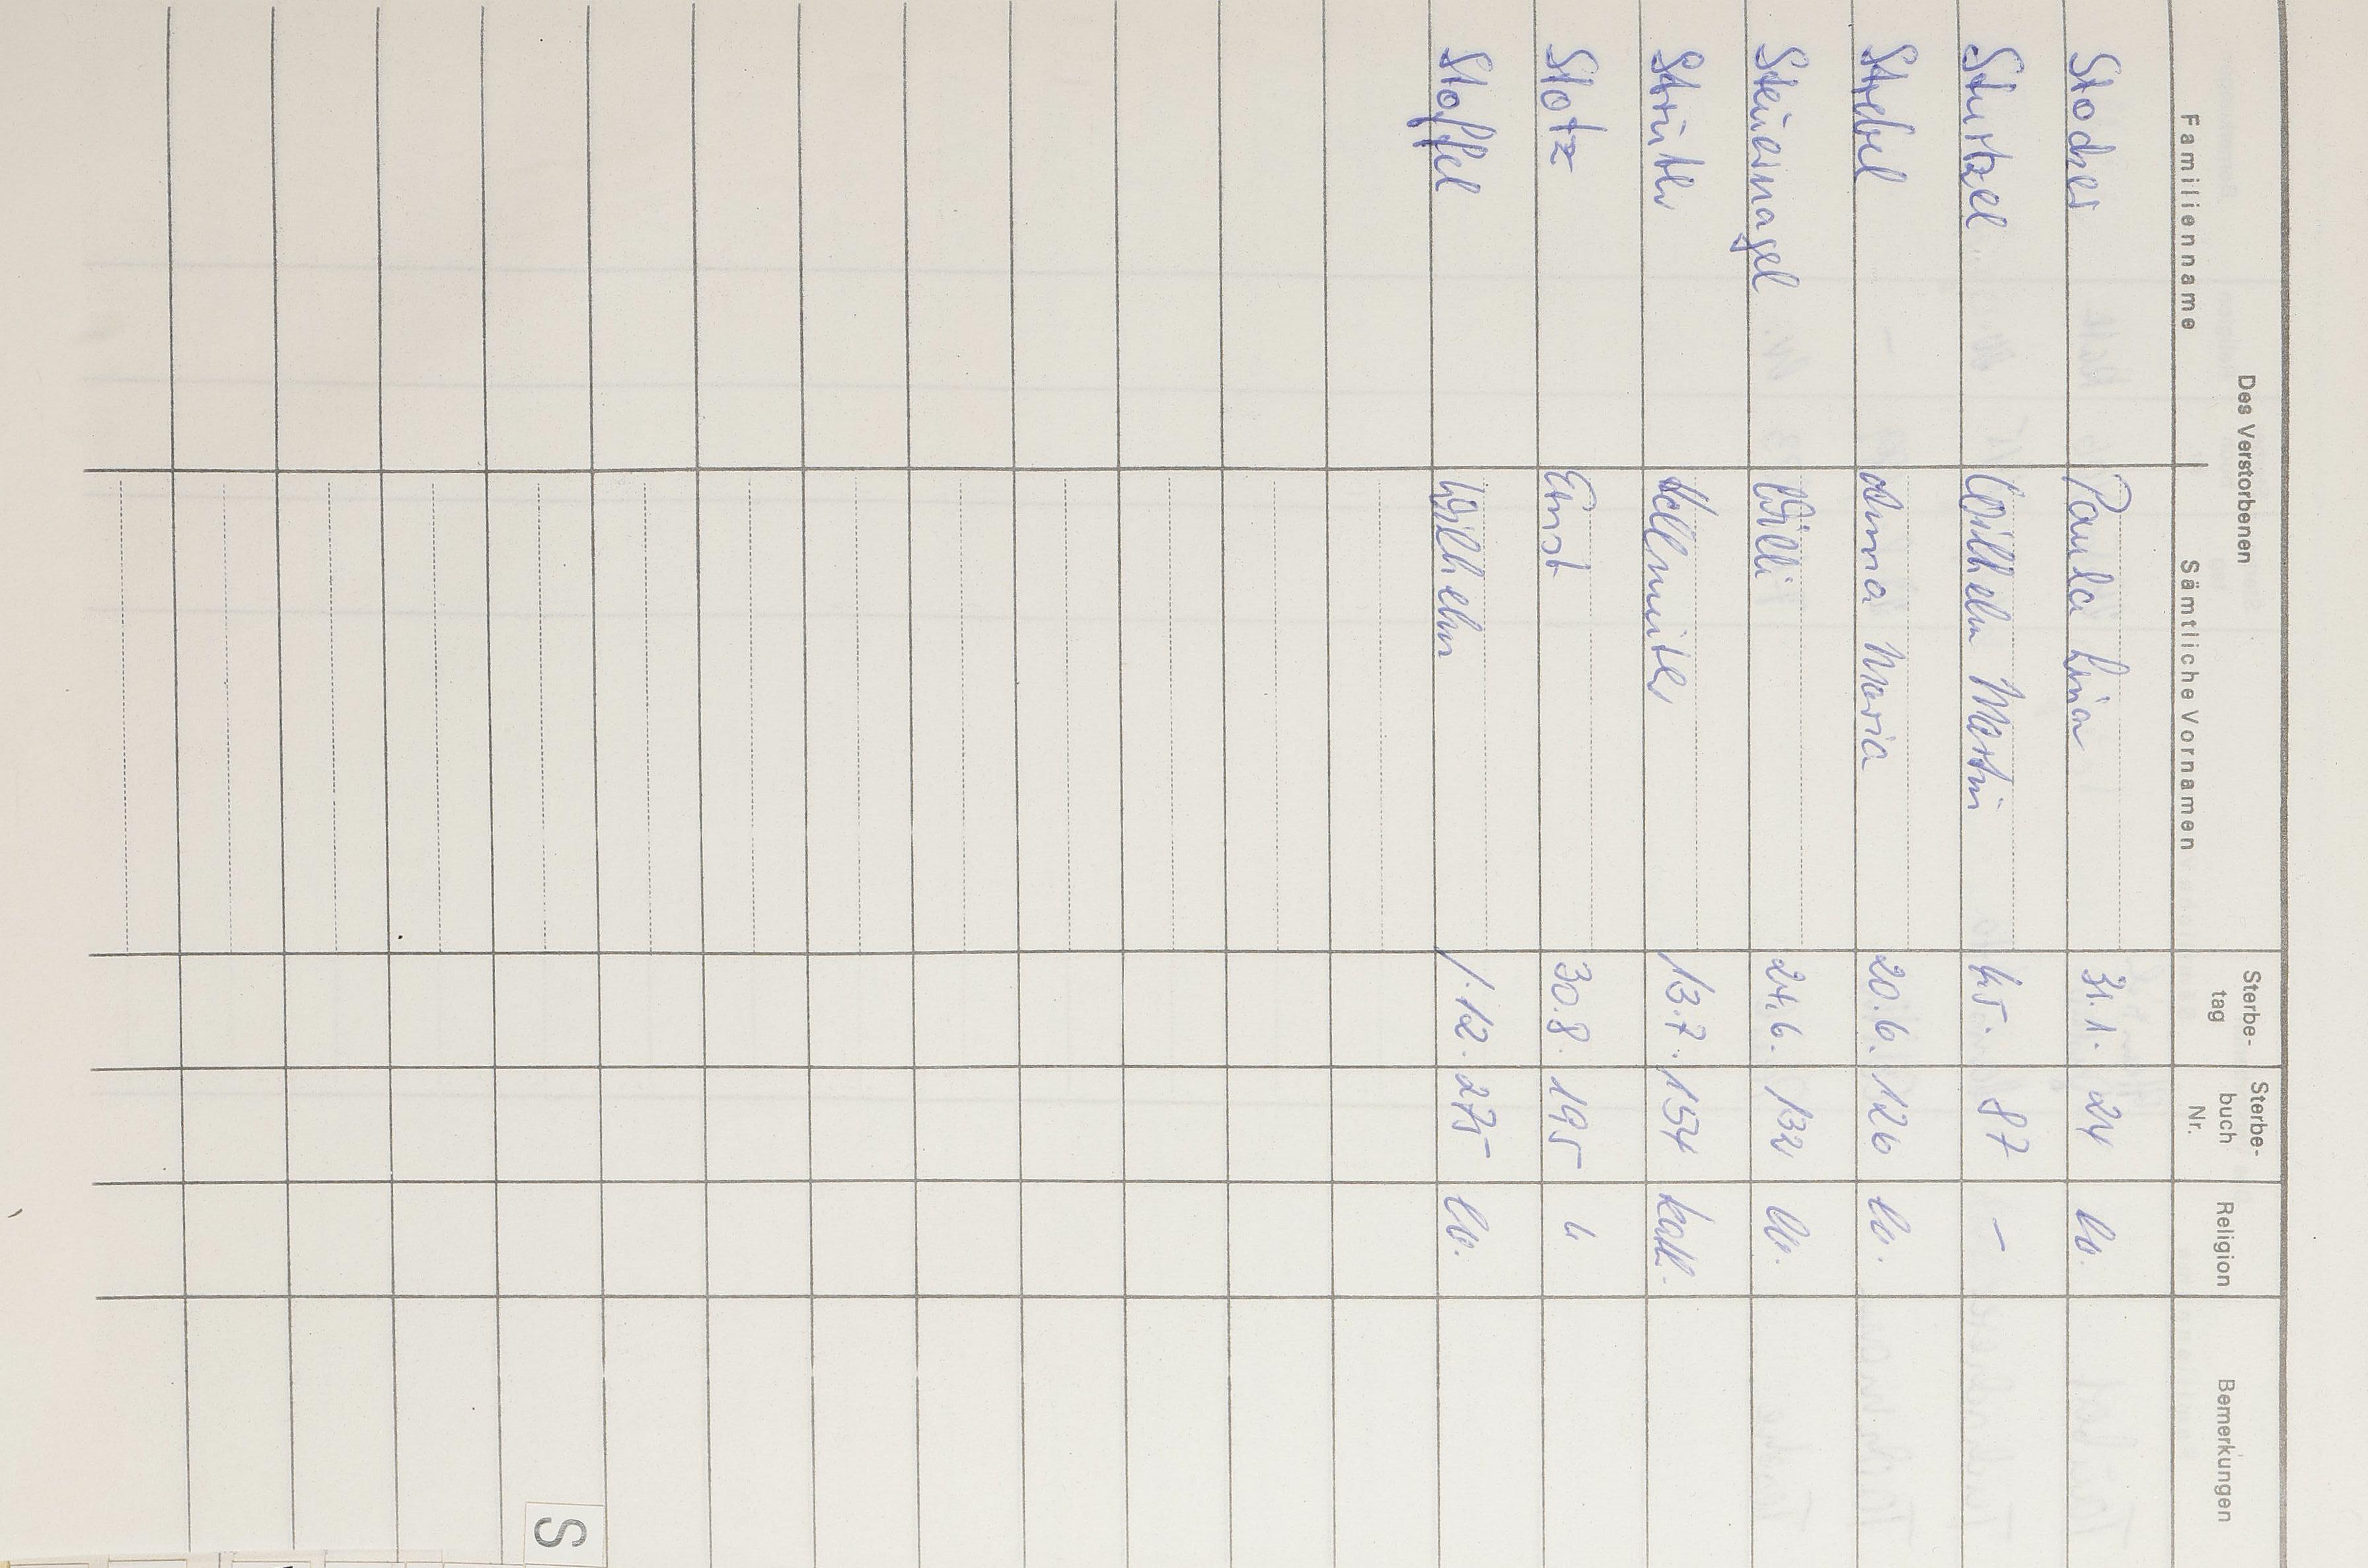 Des Verstorbenen
Familienname Sämtliche Vornamen Sterbe-tag Sterbe-buch Nr. Religion Bemerkungen
Stocker Paula Lina 31.1. 24 ev.
Sturtzel Wilhelm Martin 4.5. 87 –
Strebel Anna Maria 20.6. 126 ev.
Steuernagel Willi 24.6. 132 ev.
13.7. 154 kath.
Stotz Ernst 30.8. 195 "
Stoffel Wilhelm 1.12. 275 ev.
S